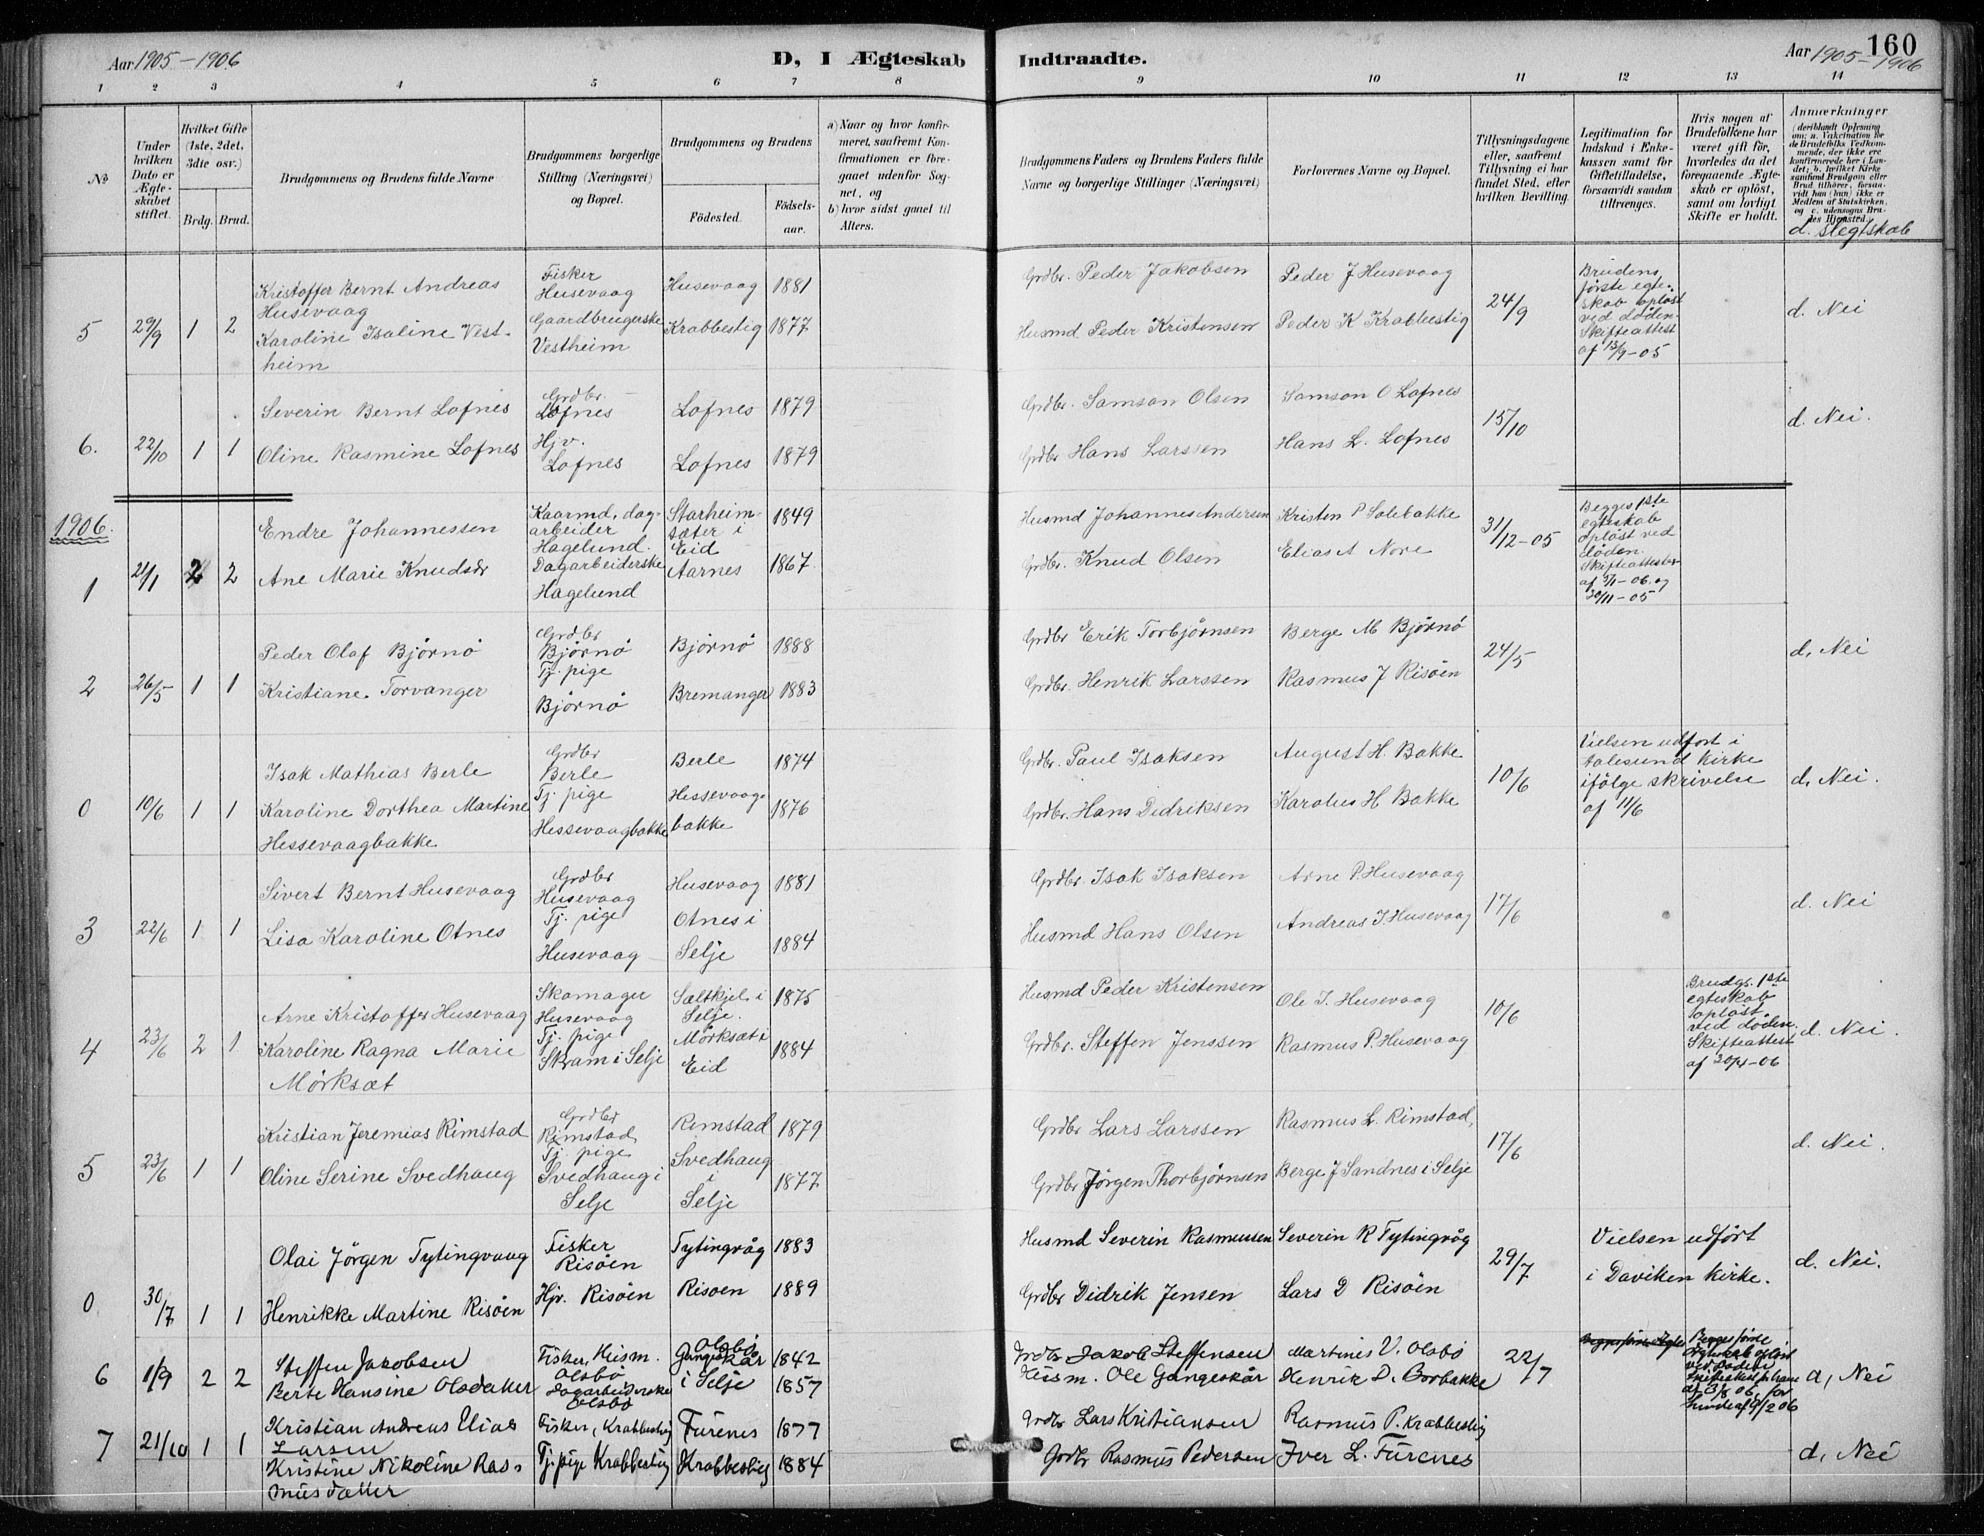 Aar 1905 – 1906
D, I Ægteskab
Indtraadte.
Aar 1905 – 1906
160
1 2 3 4 5 6 7 8 9 10 11 12 13 14
No
Under hvilken Dato er Ægteskabet stiftet.
Hvilket Gifte (1ste, 2det, 3die osv.)
Brdg. Brud.
Brudgommens og Brudens fulde Navne
Brudgommens borgerlige Stilling (Næringsvei) og Bopæl.
Brudgommens og Brudens
Födested.
Födselsaar.
a) Naar og hvor konfirmeret, saafremt Konfirmationen er foregaaet udenfor Sognet, og
b) hvor sidst gaaet til Alters.
Brudgommens Faders og Brudens Faders fulde Navne og borgerlige Stillinger (Næringsvei)
Forlovernes Navne og Bopæl.
Tillysningsdagene eller, saafremt Tillysning ei har fundet Sted, efter hvilken Bevilling.
Legitimation for Indskud i Enkekassen samt for Giftetilladelse, forsaavidt saadan tiltrænges.
Hvis nogen af Brudefolkene har været gift för, hvorledes da det foregaaende Ægteskab er oplöst, samt om lovligt Skifte er holdt.
Anmærkninger
(deriblandt Oplysning om: a. Vakcination for de Brudefolks Vedkommende, der ikke ere konfirmerede her i Landet; b. hvilket Kirkesamfund Brudgom eller Brud tilhörer, forsaavidt han (hun) ikke er Medlem af Statskirken, og c. udensogns Brudes Hjemsted.)
d. Slegtskab
5 29/9 1 2
Kristoffer Bernt Andreas
Husevaag
Karoline Isaline Vest-
heim
Fisker
Husevaag
Gaardbrugerske
Vestheim
Husevaag 1881
Krabbestig 1877
Grdbr. Peder Jakobsen
Husmd Peder Kristensen
Peder J Husevaag
Peder K Krabbestig
24/9
Brudens
første egte-
skab opløst
ved døden.
Skifteattest
af 13/9-05
d. Nei
6. 22/10 1 1
Severin Bernt Lofnes
Oline Rasmine Lofnes
Grdbr.
Lofnes
Hjv.
Lofnes
Lofnes 1879
Lofnes 1879
Grdbr. Samson Olsen
Grdbr Hans Larssen
Samson O Lofnes
Hans L. Lofnes
15/10
d. Nei.
1906.
1 21/1 2 2
Endre Johannessen
Ane Marie Knudsdr
Kaarmd, dag-
arbeider
Hagelund.
Dagarbeiderske
Hagelund
Starheim-
sæter i
Eid 1849
Aarnes 1867
Husmd Johannes Andersen
Grdbr. Knud Olsen
Kristen P Solebakke
Elias A Nore
31/12-05
Begges 1ste
egteskab
opløst ved
døden.
Skifteattester
af 9/1-06 og
30/11-05
2 26/5 1 1
Peder Olaf Bjørnø
Kristiane Torvanger
Grdbr
Bjørnø
Tj. pige
Bjørnø
Bjørnø 1888
Bremanger 1883
Grdbr Erik Torbjørnsen
Grdbr. Henrik Larssen
Berge M Bjørnø
Rasmus J Risøen
24/5
d. Nei
0 10/6 1 1
Isak Mathias Berle
Karoline Dorthea Martine
Hessevaagbakke
Grdbr
Berle
Tj. pige
Hessevaagbakke
Berle 1874
Hessevaag-
bakke 1876
Grdbr. Paul Isaksen
Grdbr. Hans Didriksen
August H. Bakke
Karolus H Bakke
10/6
Vielsen udført i
Aalesund kirke
ifølge skrivelse
af 11/6
d. Nei.
3 22/6 1 1
Sivert Bernt Husevaag
Lisa Karoline Otnes
Grdbr
Husevaag
Tj. pige
Husevaag
Husevaag 1881
Otnes i
Selje 1884
Grdbr. Isak Isaksen
Husmd Hans Olsen
Arne P. Husevaag
Andreas I Husevaag
17/6
d. Nei
4 23/6 2 1
Arne Kristoffer Husevaag
Karoline Ragna Marie
Mørksæt
Skomager
Husevaag
Tj. pige
Skram i Selje
Sæltkjel i
Selje. 1875
Mørksæt i
Eid 1884
Husmd Peder Kristensen
Grdbr. Steffen Jenssen
Ole I. Husevaag
Rasmus P. Husevaag
10/6
Brudgs. 1ste
egteskab
opløst
ved døden.
Skifteattest
af 30/4-06
d. Nei.
5 23/6 1 1
Kristian Jeremias Rimstad
Oline Serine Svedhaug
Grdbr
Rimstad
Tj. pige
Svedhaug i
Selje
Remstad 1879
Svedhaug
i
Selje 1877
Grdbr Lars Larssen
Grdbr Jørgen Thorbjørnsen
Rasmus L. Rimstad,
Berge J Sandnes i Selje
17/6
d. Nei.
0 30/7 1 1
Olai Jørgen Tytingvaag
Henrikke Martine Risøen
Fisker
Risøen
Hjv. Risøen
Tytingvåg 1883
Risoen 1889
Husmd Severin Rasmussen
Grdbr Didrik Jensen
Severin R Tytingvåg
Lars D Risøen
29/7
Vielsen udført
i Daviken kirke.
d. Nei.
6 1/9 2 2
Steffen Jacobsen
Berte Hansine Olsdatter
Fisker, Husm.
Olsbø
Dagarbeiderske
Olsbø
Olsbø
Gangeskår 1842
i Selje 1857
Grdbr Jakob Steffensen
Husm. Ole Gangeskår
Martinus V. Olsbø
Henrik D. Borbakke
22/7
Begges første
Ægteskab opløst
ved Døden
d, Nei
7 21/10 1 1
Kristian Andreas Elias
Larsen
Kristine Nikoline Ras-
musdatter
Fisker, Krabbestig
Tj. pige Krabbestig
Furenes 1877
Krabbestig 1884
Grdbr Lars Kristiansen
Grdbr Rasmus Pedersen
Rasmus P. Krabbestig
Iver L. Furenes
d, Nei